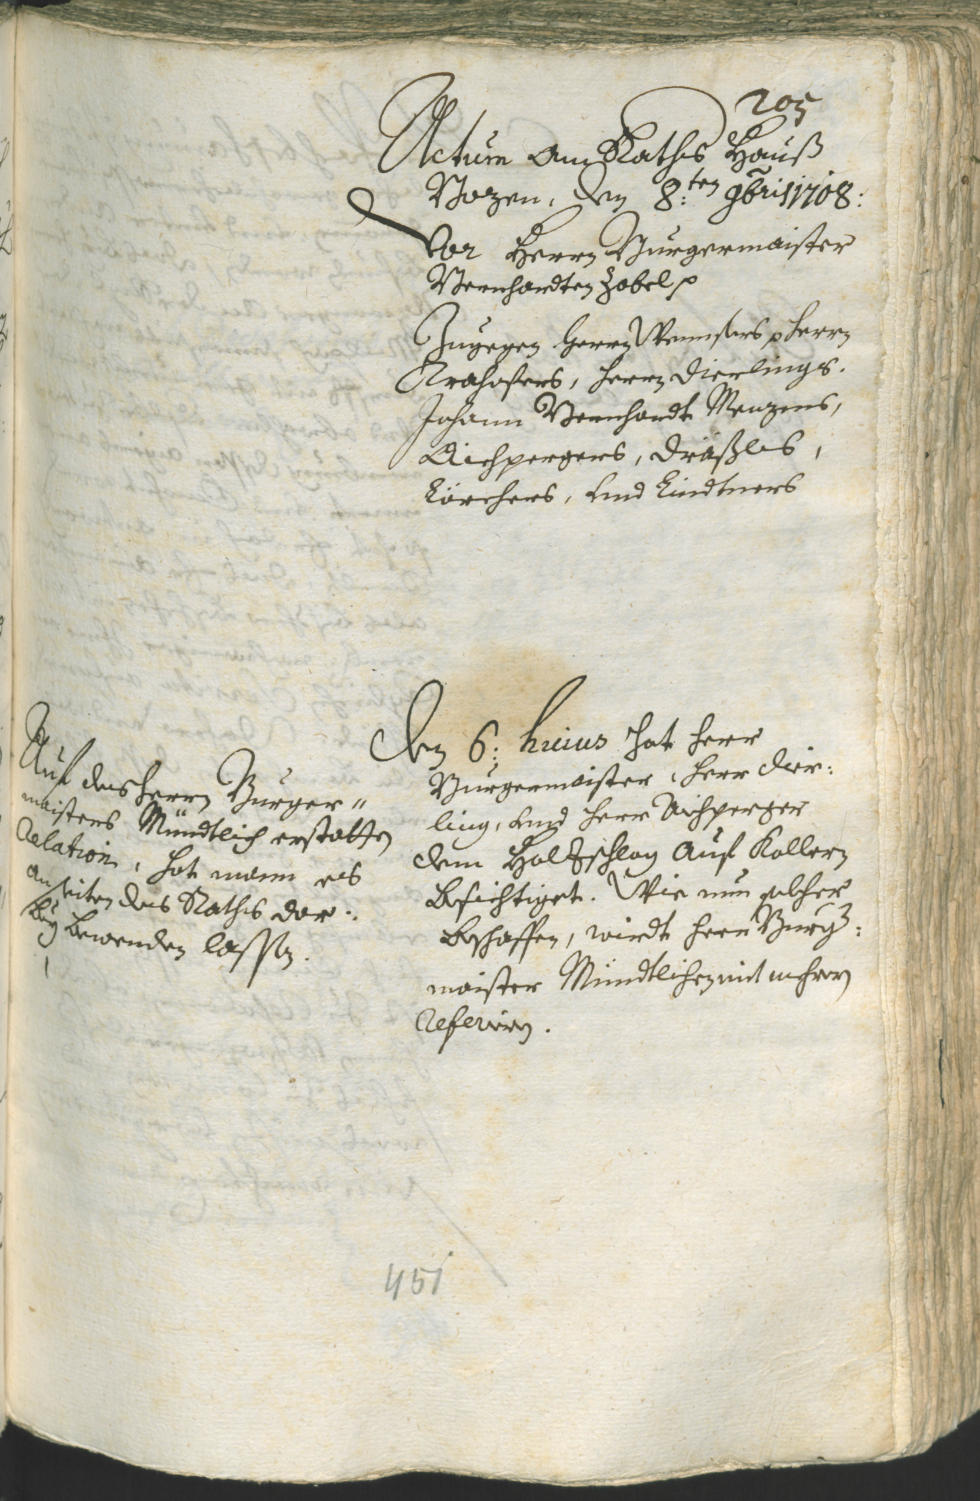 205
Actum am Raths Hauß
Bozen, den 8.ten 9bris 1708:
Vor Herrn Burgermaister
Bernhardten Zobel p
Zugegen Herrn Wenssers p Herrn
Krahofers, Herrn Dierlings.
Johann Bernhardt Menzens,
Aichpergers, Dräßls,
Körchers, und Lindtners
Den 6: huius hat Herr
Burgermaister, Herr Dier:
ling, und Herr Aichperger
dem Holzschlag auf Kollern
besichtiget. Wie nun solcher
beschaffen, wirdt Herr Burg:
maister Mündtlichen mit mehrern
Referirn.
Auf des Herrn Burger"
maisters Mündtlich erstatten
Relation, hat mann es
an seiten des Raths dar:
bey bewenden lassen.
451